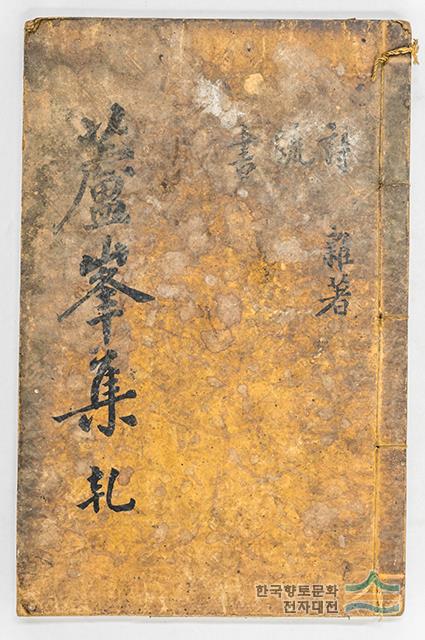 詩 雜著
疏
書
蘆峯集 乹
한국향토문화
전자대전